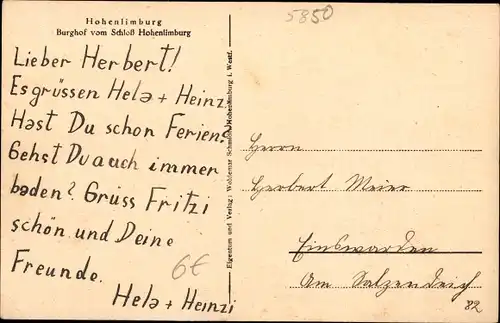 Hohenlimburg
Burghof vom Schloß Hohenlimburg
5850
Lieber Herbert!
Es grüssen Hela + Heinzi
Hast Du schon Ferien?
Gehst Du auch immer
baden? Grüss Fritzi
schön und Deine
Freunde.
Hela + Heinzi
6€
Eigentum und Verlag: Woldemar Schmidt, Hohenlimburg i. Westf.
Herrn
Herbert Meier
Einswarden
Am Salzendeich
82